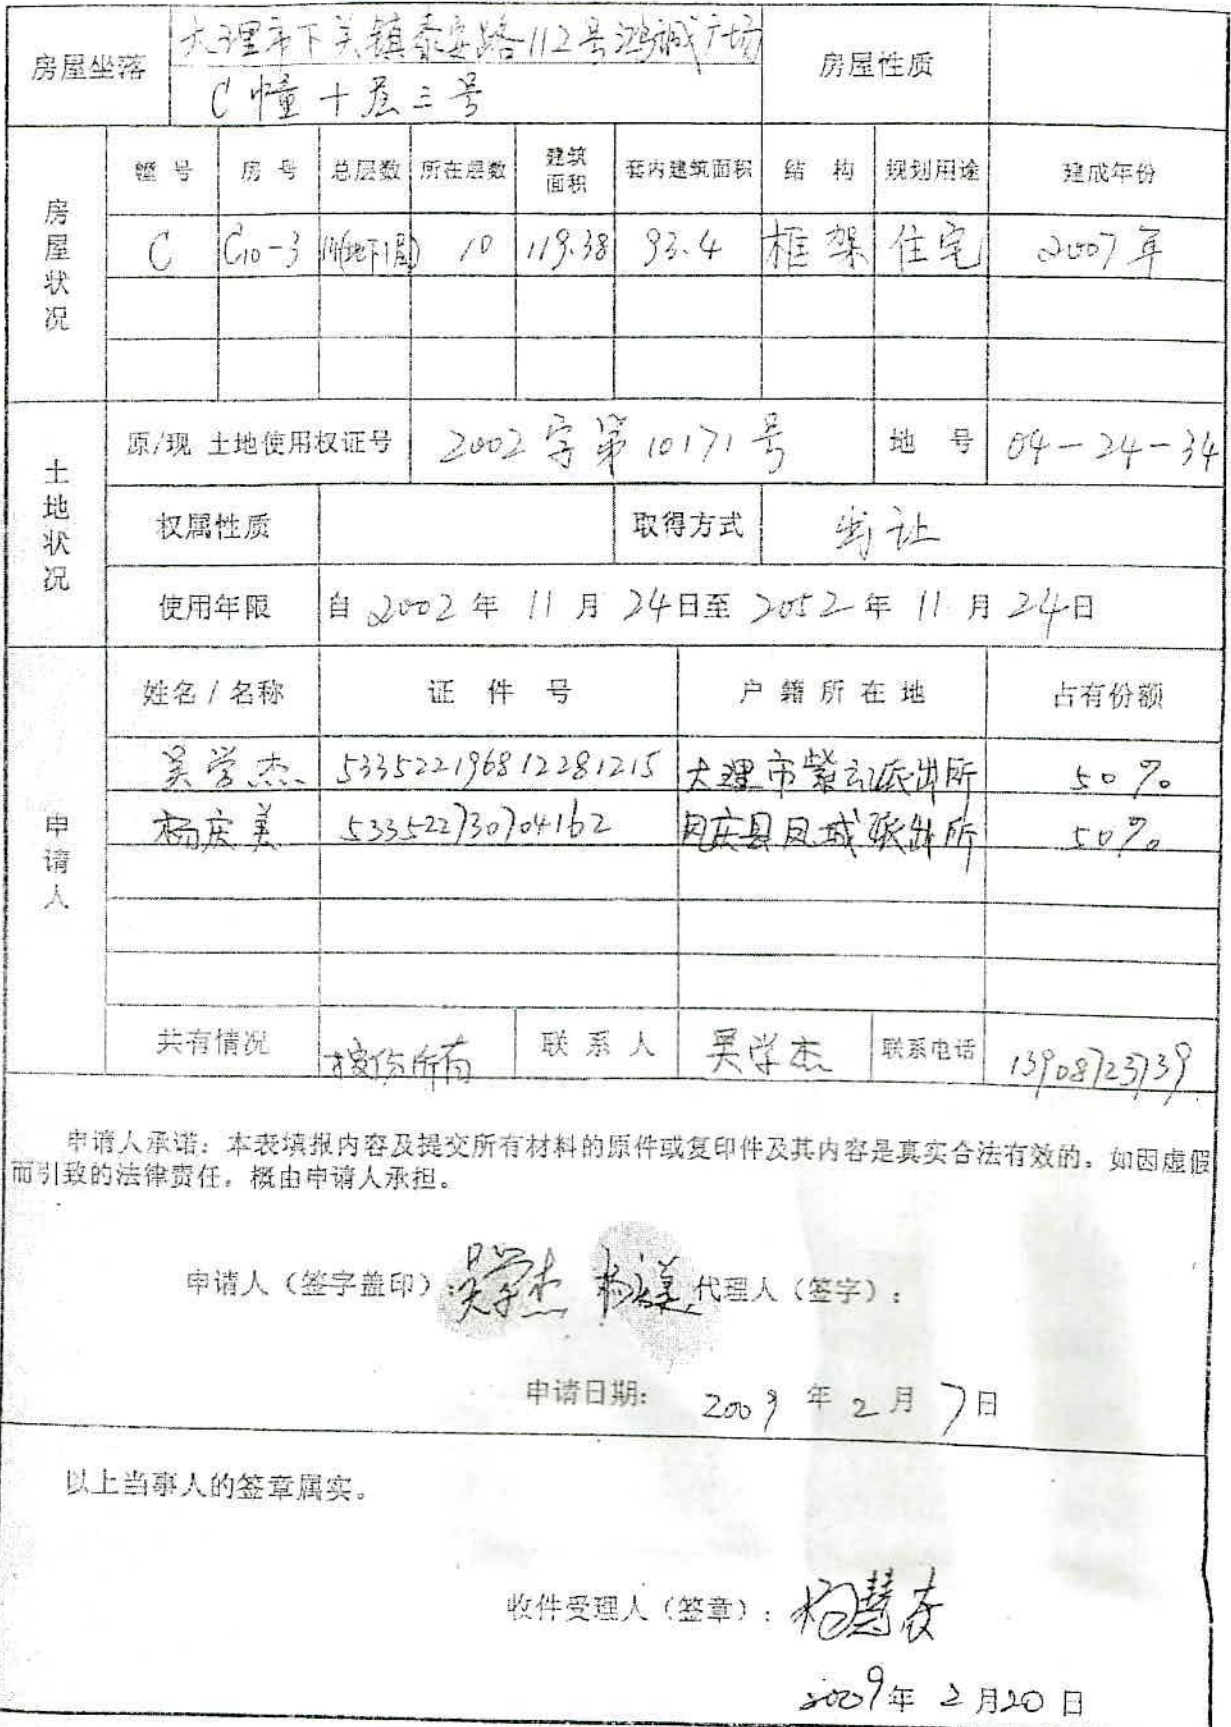 房屋坐落 大理市下关镇泰安路112号鸿诚广场 房屋性质
C幢十层三号
房屋状况
幢号 房号 总层数 所在层数 建筑面积 套内建筑面积 结构 规划用途 建成年份
C C10-3 (地下1层) 10 119.38 93.4 框架 住宅 2007年
土地状况
原/现 土地使用权证号 2002字第10171号 地号 04-24-34
权属性质 取得方式 出让
使用年限 自2002年11月24日至2052年11月24日
申请人
姓名/名称 证件号 户籍所在地 占有份额
吴学杰 533522196812281215 大理市紫云派出所 50%
杨庆美 533522730704162 凤庆县凤城派出所 50%
共有情况 按份所有 联系人 吴学杰 联系电话 13908723739
申请人承诺：本表填报内容及提交所有材料的原件或复印件及其内容是真实合法有效的，如因虚假
而引致的法律责任，概由申请人承担。
申请人（签字盖印）：吴学杰 杨庆美 代理人（签字）：
申请日期： 2009年2月7日
以上当事人的签章属实。
收件受理人（签章）：杨慧芬
2009年2月20日